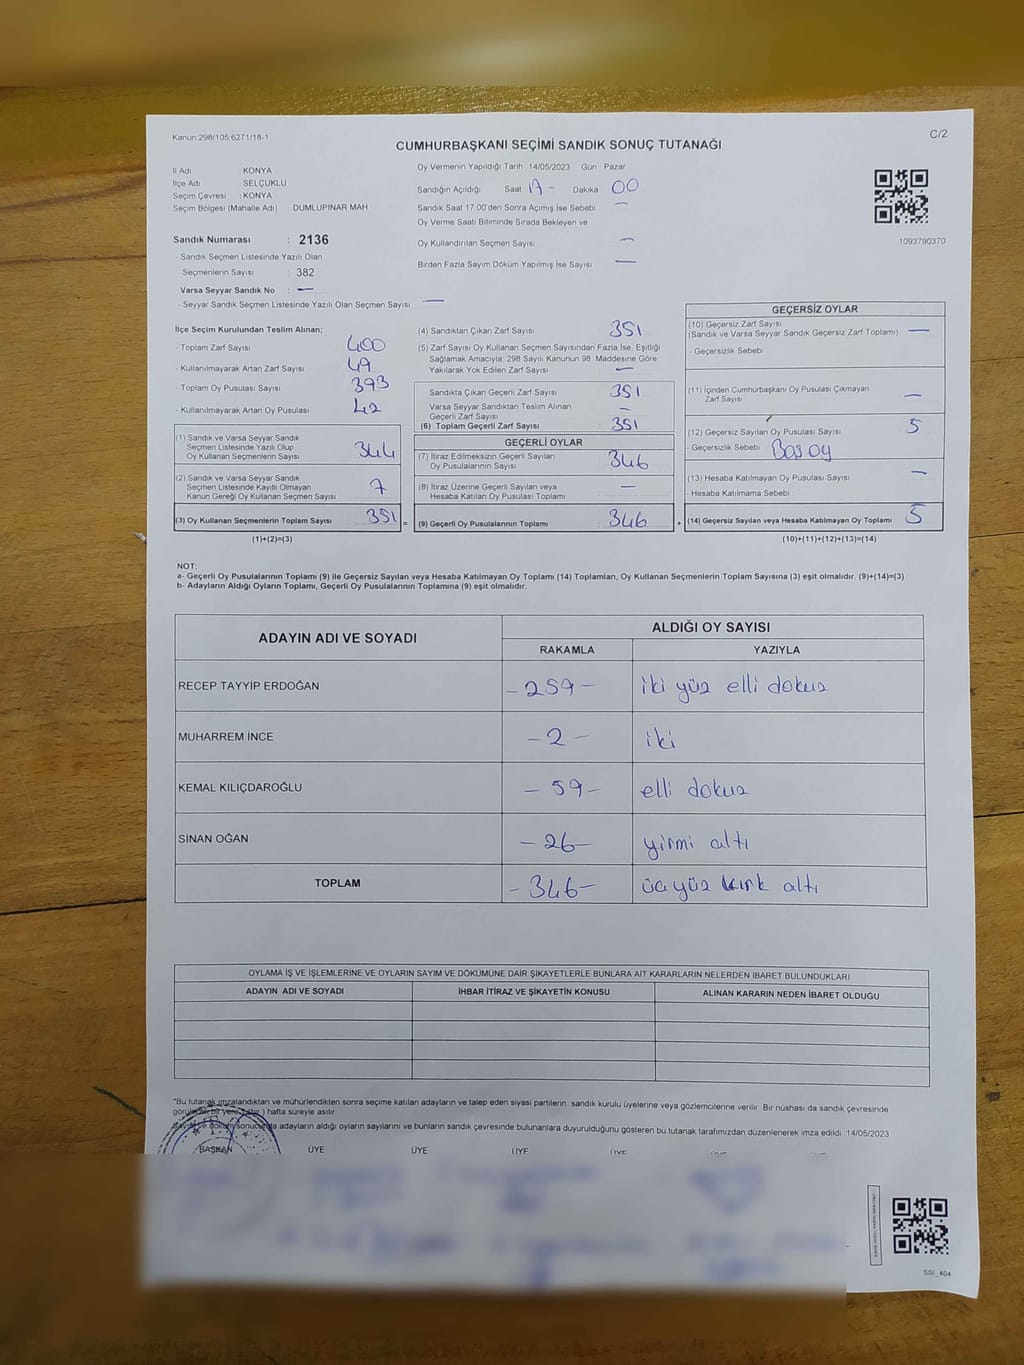 Kanun 298/105 6271/18-1
C/2
CUMHURBAŞKANI SEÇİMİ SANDIK SONUÇ TUTANAĞI
İl Adı KONYA
İlçe Adı SELÇUKLU
Seçim Çevresi : KONYA
Seçim Bölgesi (Mahalle Adı) DUMLUPINAR MAH
Sandık Numarası : 2136
- Sandık Seçmen Listesinde Yazılı Olan
Seçmenlerin Sayısı : 382
Varsa Seyyar Sandık No : —
- Seyyar Sandık Seçmen Listesinde Yazılı Olan Seçmen Sayısı —
Oy Vermenin Yapıldığı Tarih 14/05/2023 Gün Pazar
Sandığın Açıldığı Saat 17- Dakika 00
Sandık Saat 17:00'den Sonra Açımış İse Sebebi —
Oy Verme Saati Bitiminde Sırada Bekleyen ve
Oy Kullandırılan Seçmen Sayısı —
Birden Fazla Sayım Döküm Yapılmış İse Sayısı —
1093790370
İlçe Seçim Kurulundan Teslim Alınan;
- Toplam Zarf Sayısı 400
- Kullanılmayarak Artan Zarf Sayısı 49
- Toplam Oy Pusulası Sayısı 393
- Kullanılmayarak Artan Oy Pusulası 42
(1) Sandık ve Varsa Seyyar Sandık
Seçmen Listesinde Yazılı Olup
Oy Kullanan Seçmenlerin Sayısı 344
(2) Sandık ve Varsa Seyyar Sandık
Seçmen Listesinde Kayıtlı Olmayan
Kanun Gereği Oy Kullanan Seçmen Sayısı 7
(3) Oy Kullanan Seçmenlerin Toplam Sayısı 351 =
(1)+(2)=(3)
(4) Sandıktan Çıkan Zarf Sayısı 351
(5) Zarf Sayısı Oy Kullanan Seçmen Sayısından Fazla İse, Eşitliği
Sağlamak Amacıyla; 298 Sayılı Kanunun 98. Maddesine Göre
Yakılarak Yok Edilen Zarf Sayısı —
Sandıkta Çıkan Geçerli Zarf Sayısı 351
Varsa Seyyar Sandıktan Teslim Alınan
Geçerli Zarf Sayısı —
(6) Toplam Geçerli Zarf Sayısı 351
GEÇERLİ OYLAR
(7) İtiraz Edilmeksizin Geçerli Sayılan
Oy Pusulalarının Sayısı 346
(8) İtiraz Üzerine Geçerli Sayılan veya
Hesaba Katılan Oy Pusulası Toplamı —
(9) Geçerli Oy Pusulalarının Toplamı 346 +
GEÇERSİZ OYLAR
(10) Geçersiz Zarf Sayısı
(Sandık ve Varsa Seyyar Sandık Geçersiz Zarf Toplamı) —
- Geçersizlik Sebebi
(11) İçinden Cumhurbaşkanı Oy Pusulası Çıkmayan
Zarf Sayısı —
(12) Geçersiz Sayılan Oy Pusulası Sayısı 5
- Geçersizlik Sebebi Boş oy
(13) Hesaba Katılmayan Oy Pusulası Sayısı —
- Hesaba Katılmama Sebebi
(14) Geçersiz Sayılan veya Hesaba Katılmayan Oy Toplamı 5
(10)+(11)+(12)+(13)=(14)
NOT:
a- Geçerli Oy Pusulalarının Toplamı (9) ile Geçersiz Sayılan veya Hesaba Katılmayan Oy Toplamı (14) Toplamları, Oy Kullanan Seçmenlerin Toplam Sayısına (3) eşit olmalıdır. (9)+(14)=(3)
b- Adayların Aldığı Oyların Toplamı, Geçerli Oy Pusulalarının Toplamına (9) eşit olmalıdır.
ADAYIN ADI VE SOYADI ALDIĞI OY SAYISI
RAKAMLA YAZIYLA
RECEP TAYYİP ERDOĞAN -259- iki yüz elli dokuz
MUHARREM İNCE -2- iki
KEMAL KILIÇDAROĞLU -59- elli dokuz
SİNAN OĞAN -26- yirmi altı
TOPLAM -346- üçyüz kırk altı
OYLAMA İŞ VE İŞLEMLERİNE VE OYLARIN SAYIM VE DÖKÜMÜNE DAİR ŞİKAYETLERLE BUNLARA AİT KARARLARIN NELERDEN İBARET BULUNDUKLARI
ADAYIN ADI VE SOYADI İHBAR İTİRAZ VE ŞİKAYETİN KONUSU ALINAN KARARIN NEDEN İBARET OLDUĞU
*Bu tutanak imzalandıktan ve mühürlendikten sonra seçime katılan adayların ve talep eden siyasi partilerin sandık kurulu üyelerine veya gözlemcilerine verilir. Bir nüshası da sandık çevresinde
görülecek bir yere 1 (bir) hafta süreyle asılır
Sayım ve döküm sonucunda adayların aldığı oyların sayılarını ve bunların sandık çevresinde bulunanlara duyurulduğunu gösteren bu tutanak tarafımızdan düzenlenerek imza edildi. 14/05/2023
BAŞKAN ÜYE ÜYE ÜYE ÜYE
SSI_404